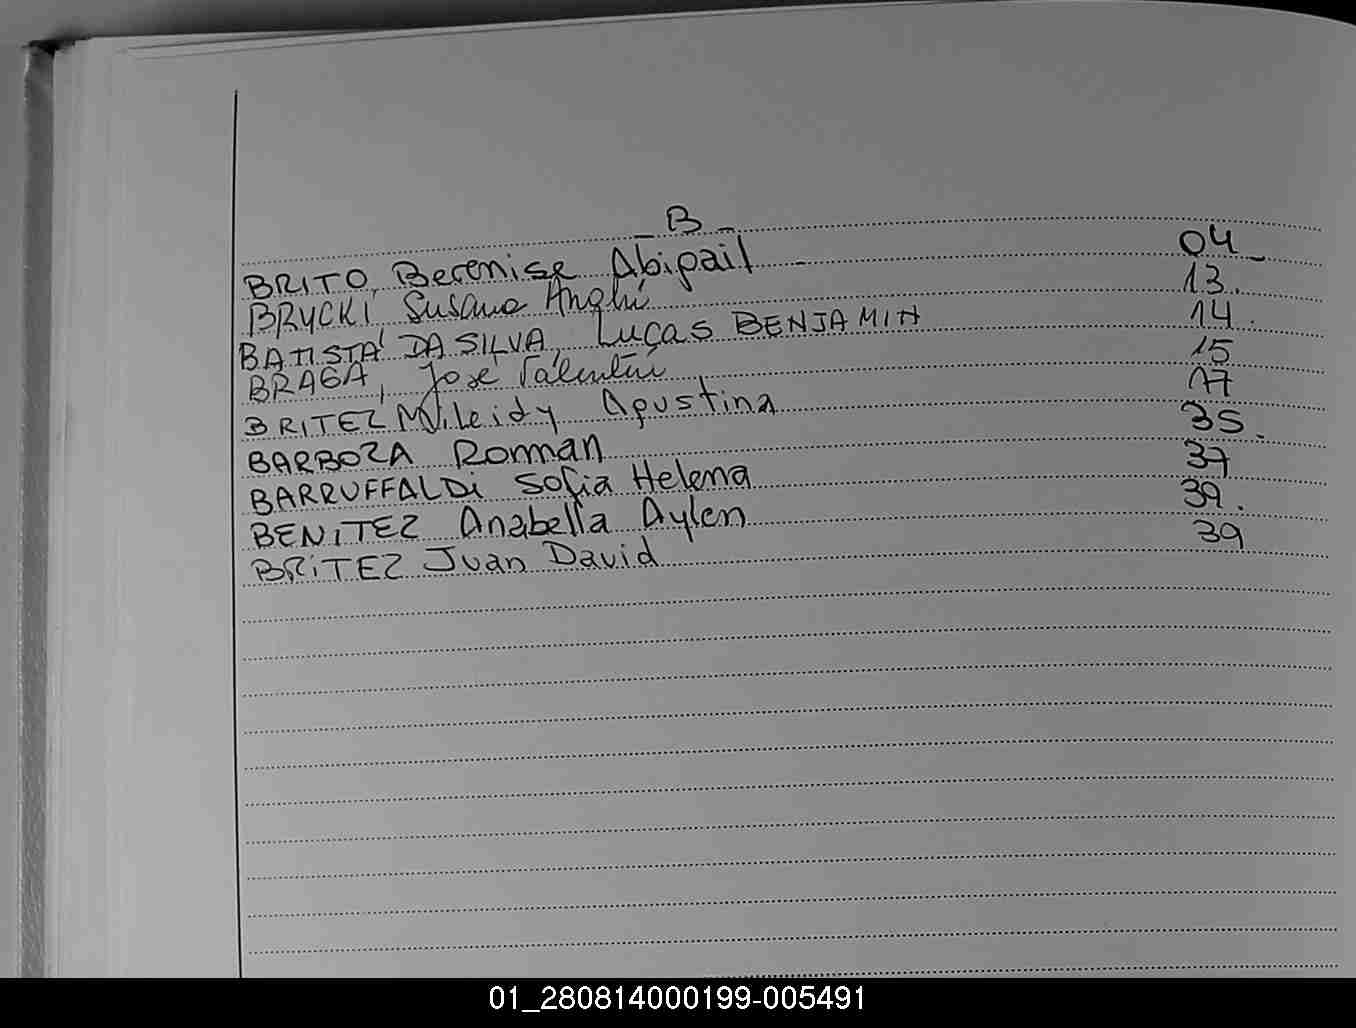 _ B _
BRITO, Berenise Abigail - 04_
BRYCKI Susana Anahí 13.
BATISTA DA SILVA, Lucas BENJAMIN 14.
BRAGA, José Valentín 15
BRITEZ Mileidy Agustina 17
BARBOZA Romman 35.
BARRUFFALDi Sofia Helena 37
BENiTEZ Anabella Aylen 39.
BRiTEZ Juan David 39
01_280814000199-005491